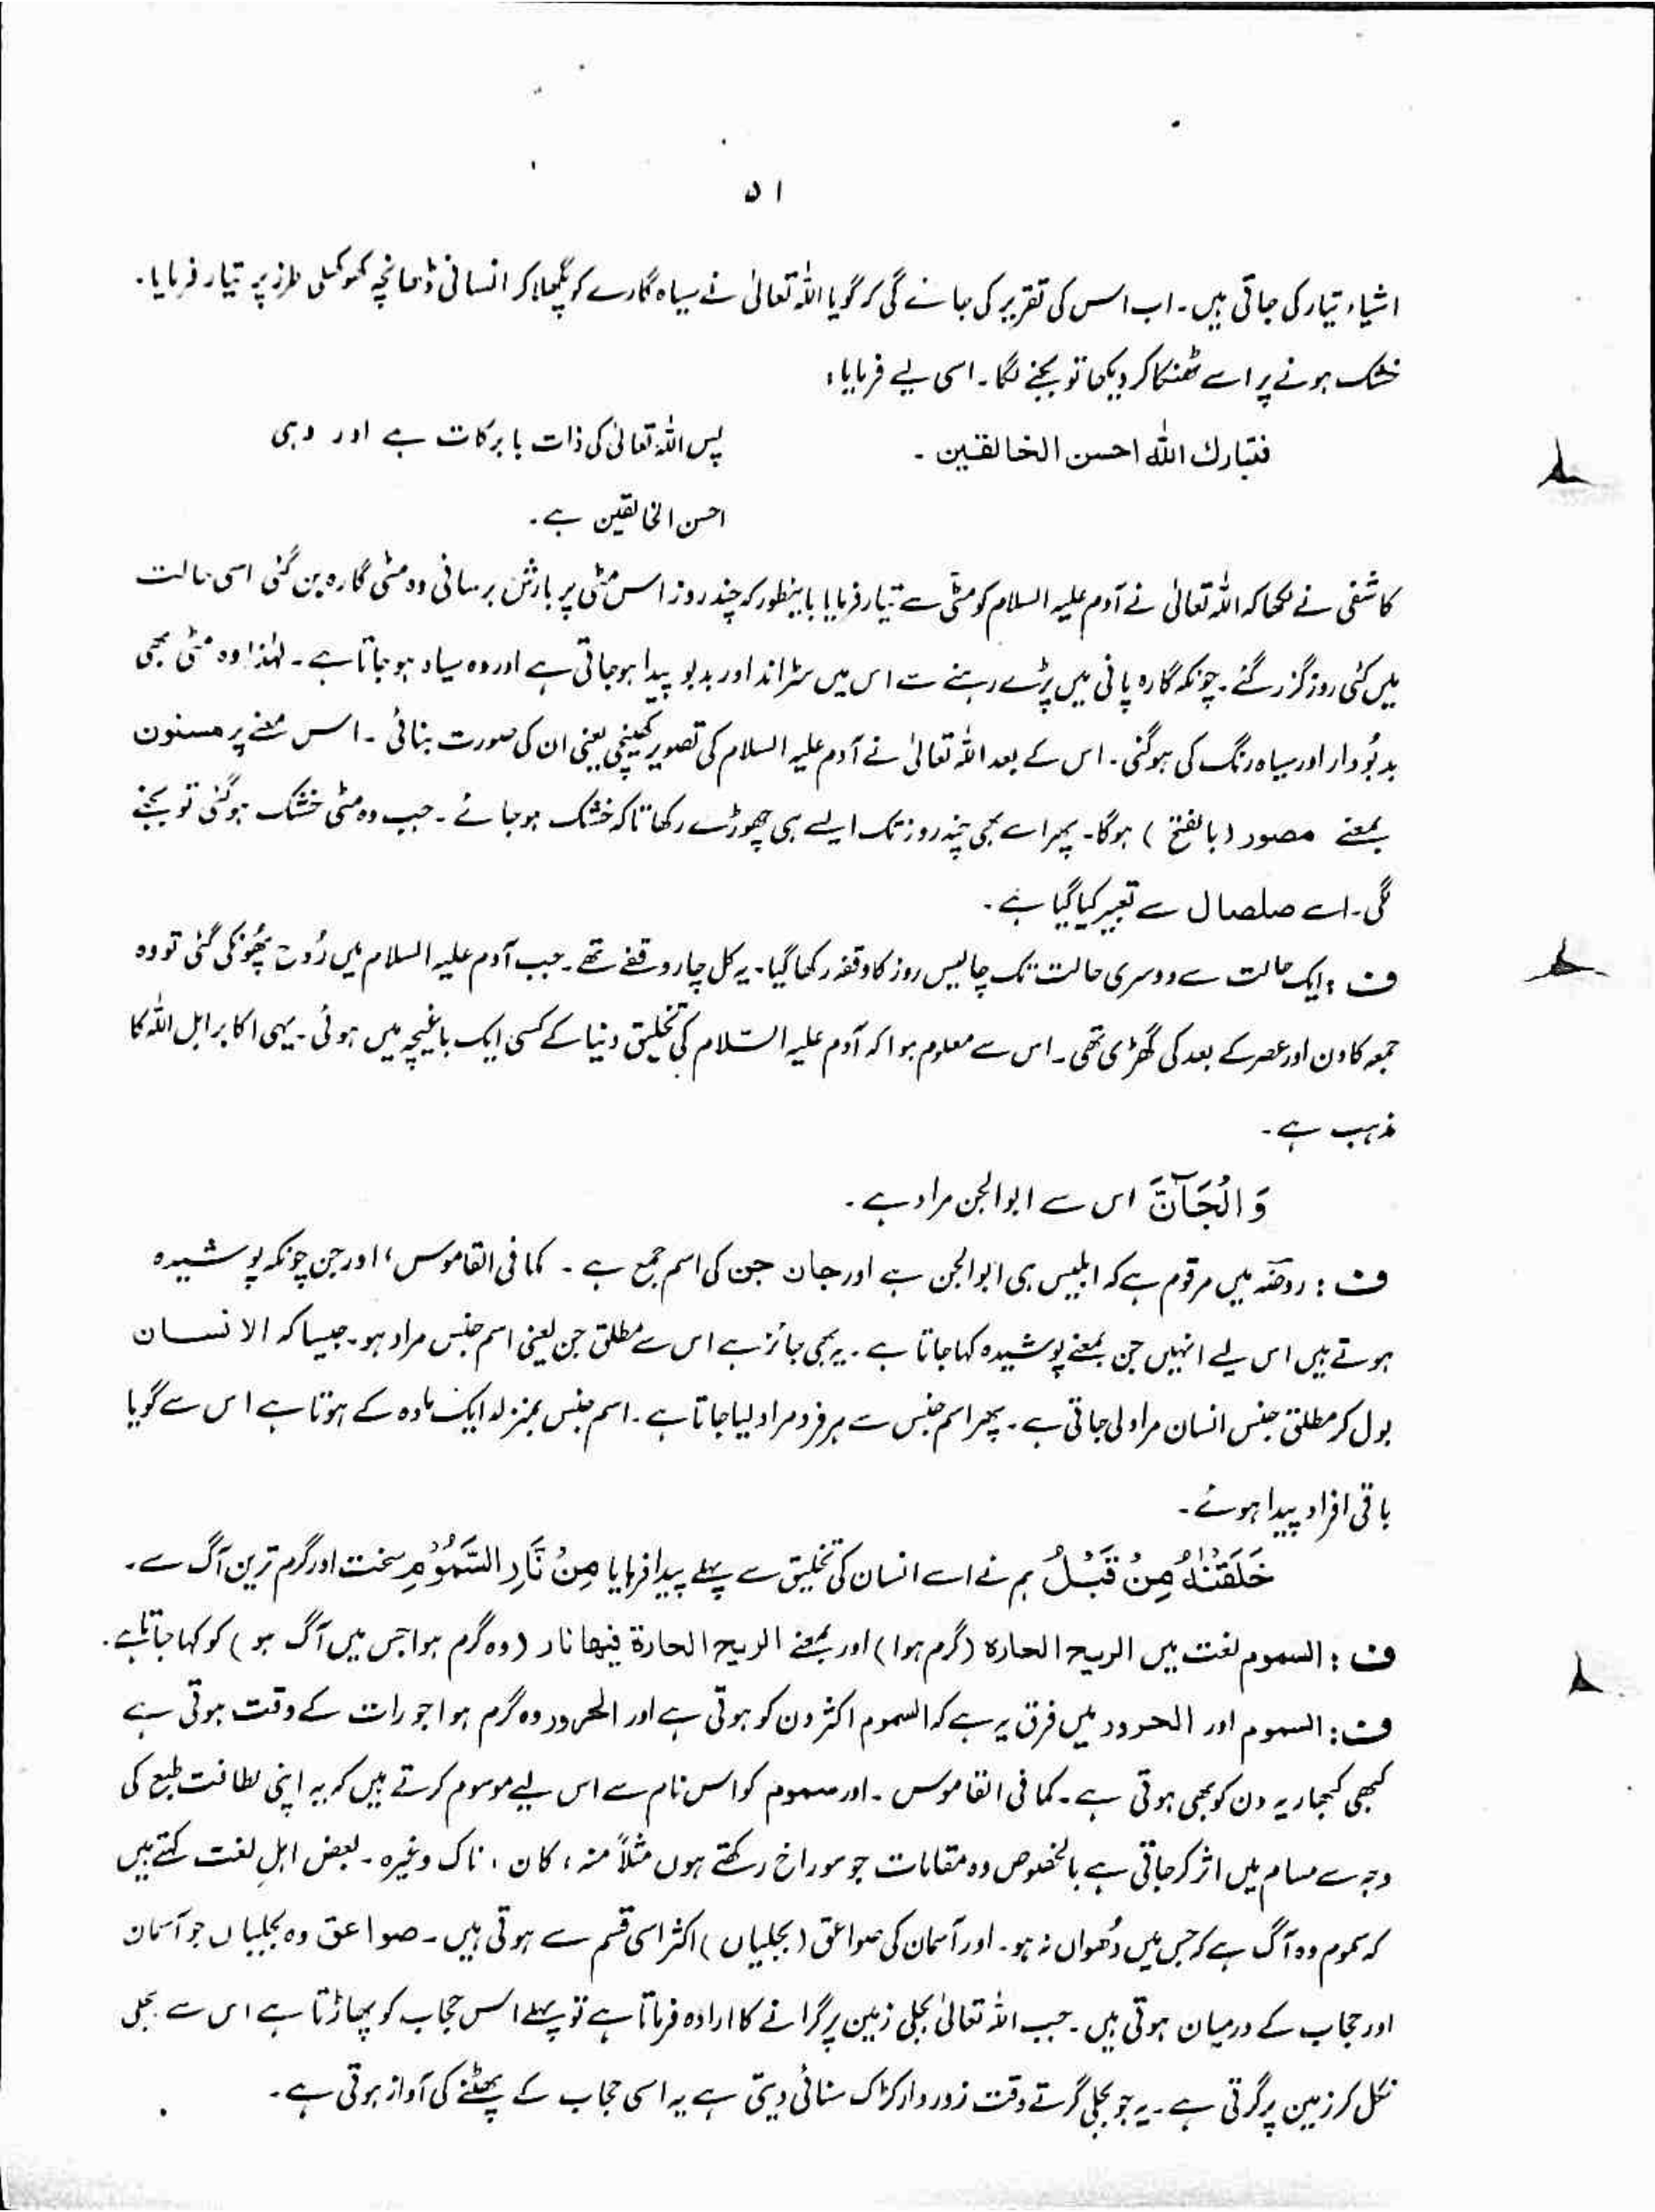 ۵۱
اشیاء تیار کی جاتی ہیں۔ اب اس کی تقریر کی جائے گی کہ گویا اللہ تعالیٰ نے سیاہ گارے کو پگھلا کر انسانی ڈھانچہ کھوکھلی طرز پر تیار فرمایا۔
خشک ہونے پر اسے ٹھنکا کر دیکھا تو بجنے لگا۔ اسی لیے فرمایا:
فتبارك الله احسن الخالقين ۔ پس اللہ تعالیٰ کی ذات بابرکات ہے اور وہی
احسن الخالقین ہے۔
کاشفی نے لکھا کہ اللہ تعالیٰ نے آدم علیہ السلام کو مٹی سے تیار فرمایا باینطور کہ چند روز اس مٹی پر بارش برسائی وہ مٹی گارہ بن گئی اسی حالت
میں کئی روز گزر گئے۔ چونکہ گارہ پانی میں پڑے رہنے سے اس میں سڑاند اور بدبو پیدا ہو جاتی ہے اور وہ سیاہ ہو جاتا ہے۔ لہٰذا وہ مٹی بھی
بدبُودار اور سیاہ رنگ کی ہو گئی۔ اس کے بعد اللہ تعالیٰ نے آدم علیہ السلام کی تصویر کھینچی یعنی ان کی صورت بنائی۔ اس معنے پر مسنون
بمعنے مصور (بالفتح) ہوگا۔ پھر اسے بھی چند روز تک ایسے ہی چھوڑے رکھا تاکہ خشک ہو جائے۔ جب وہ مٹی خشک ہو گئی تو بجنے
لگی۔ اسے صلصال سے تعبیر کیا گیا ہے۔
ف : ایک حالت سے دوسری حالت تک چالیس روز کا وقفہ رکھا گیا۔ یہ کل چار وقفے تھے۔ جب آدم علیہ السلام میں رُوح پھُونکی گئی تو وہ
جمعہ کا دن اور عصر کے بعد کی گھڑی تھی۔ اس سے معلوم ہوا کہ آدم علیہ السّلام کی تخلیق دنیا کے کسی ایک باغیچہ میں ہوئی۔ یہی اکابر اہل اللہ کا
مذہب ہے۔
وَالْجَآنَّ اس سے ابوالجن مراد ہے۔
ف : روضہ میں مرقوم ہے کہ ابلیس ہی ابوالجن ہے اور جان جن کی اسم جمع ہے ۔ کما فی القاموس، اور جن چونکہ پوشیدہ
ہوتے ہیں اس لیے انہیں جن بمعنے پوشیدہ کہا جاتا ہے۔ یہ بھی جائز ہے اس سے مطلق جن یعنی اسم جنس مراد ہو۔ جیسا کہ الانسان
بول کر مطلق جنس انسان مراد لی جاتی ہے۔ پھر اسم جنس سے ہر فرد مراد لیا جاتا ہے۔ اسم جنس بمنزلہ ایک مادہ کے ہوتا ہے اس سے گویا
باقی افراد پیدا ہوئے۔
خَلَقْنٰهُ مِنْ قَبْلُ ہم نے اسے انسان کی تخلیق سے پہلے پیدا فرمایا مِنْ نَّارِ السَّمُوْمِ سخت اور گرم ترین آگ سے۔
ف : السموم لغت میں الريح الحارة (گرم ہوا) اور بمعنے الريح الحارة فيها نار (وہ گرم ہوا جس میں آگ ہو) کو کہا جاتا ہے۔
ف : السموم اور الحرور میں فرق یہ ہے کہ السموم اکثر دن کو ہوتی ہے اور الحرور وہ گرم ہوا جو رات کے وقت ہوتی ہے
کبھی کبھار یہ دن کو بھی ہوتی ہے۔ کما فی القاموس ۔ اور سموم کو اس نام سے اس لیے موسوم کرتے ہیں کہ یہ اپنی لطافت طبع کی
وجہ سے مسام میں اثر کر جاتی ہے بالخصوص وہ مقامات جو سوراخ رکھتے ہوں مثلاً منہ، کان، ناک وغیرہ۔ بعض اہلِ لغت کہتے ہیں
کہ سموم وہ آگ ہے کہ جس میں دُھواں نہ ہو۔ اور آسمان کی صواعق (بجلیاں) اکثر اسی قسم سے ہوتی ہیں۔ صواعق وہ بجلیاں جو آسمان
اور حجاب کے درمیان ہوتی ہیں۔ جب اللہ تعالیٰ بجلی زمین پر گرانے کا ارادہ فرماتا ہے تو پہلے اس حجاب کو پھاڑتا ہے اس سے بجلی
نکل کر زمین پر گرتی ہے۔ یہ جو بجلی گرتے وقت زوردار کڑک سنائی دیتی ہے یہ اسی حجاب کے پھٹنے کی آواز ہوتی ہے۔